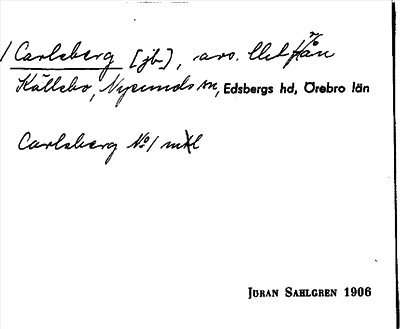 Carlsberg [jb.], avs. till från
Källebo, Nysunds sn, Edsbergs hd, Örebro län
Carlsberg № 1 mtl
JÖRAN SAHLGREN 1906